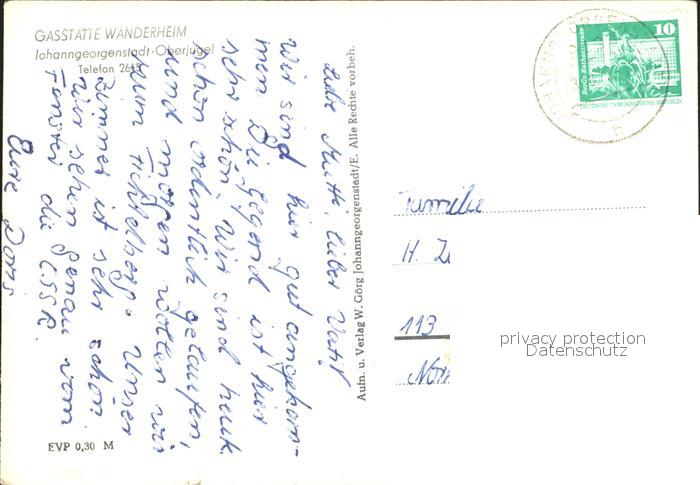 GASSTÄTTE WANDERHEIM
Johanngeorgenstadt-Oberjugel
Telefon 2615
Liebe Mutti, lieber Vati!
Wir sind hier gut angekom-
men. Die Gegend ist hier
sehr schön. Wir sind heute
schon ordentlich gelaufen,
und morgen wollen wir
zum Fichtelberg. Unser
Zimmer ist sehr schön.
Wir sehen genau vom
Fenster die ČSSR.
Eure Doris
EVP 0,30 M
Aufn. u. Verlag W. Görg Johanngeorgenstadt/E. Alle Rechte vorbeh.
10
Berlin, Rathausstraße
DEUTSCHE DEMOKRATISCHE REPUBLIK
b
Familie
H.
113
privacy protection
Datenschutz